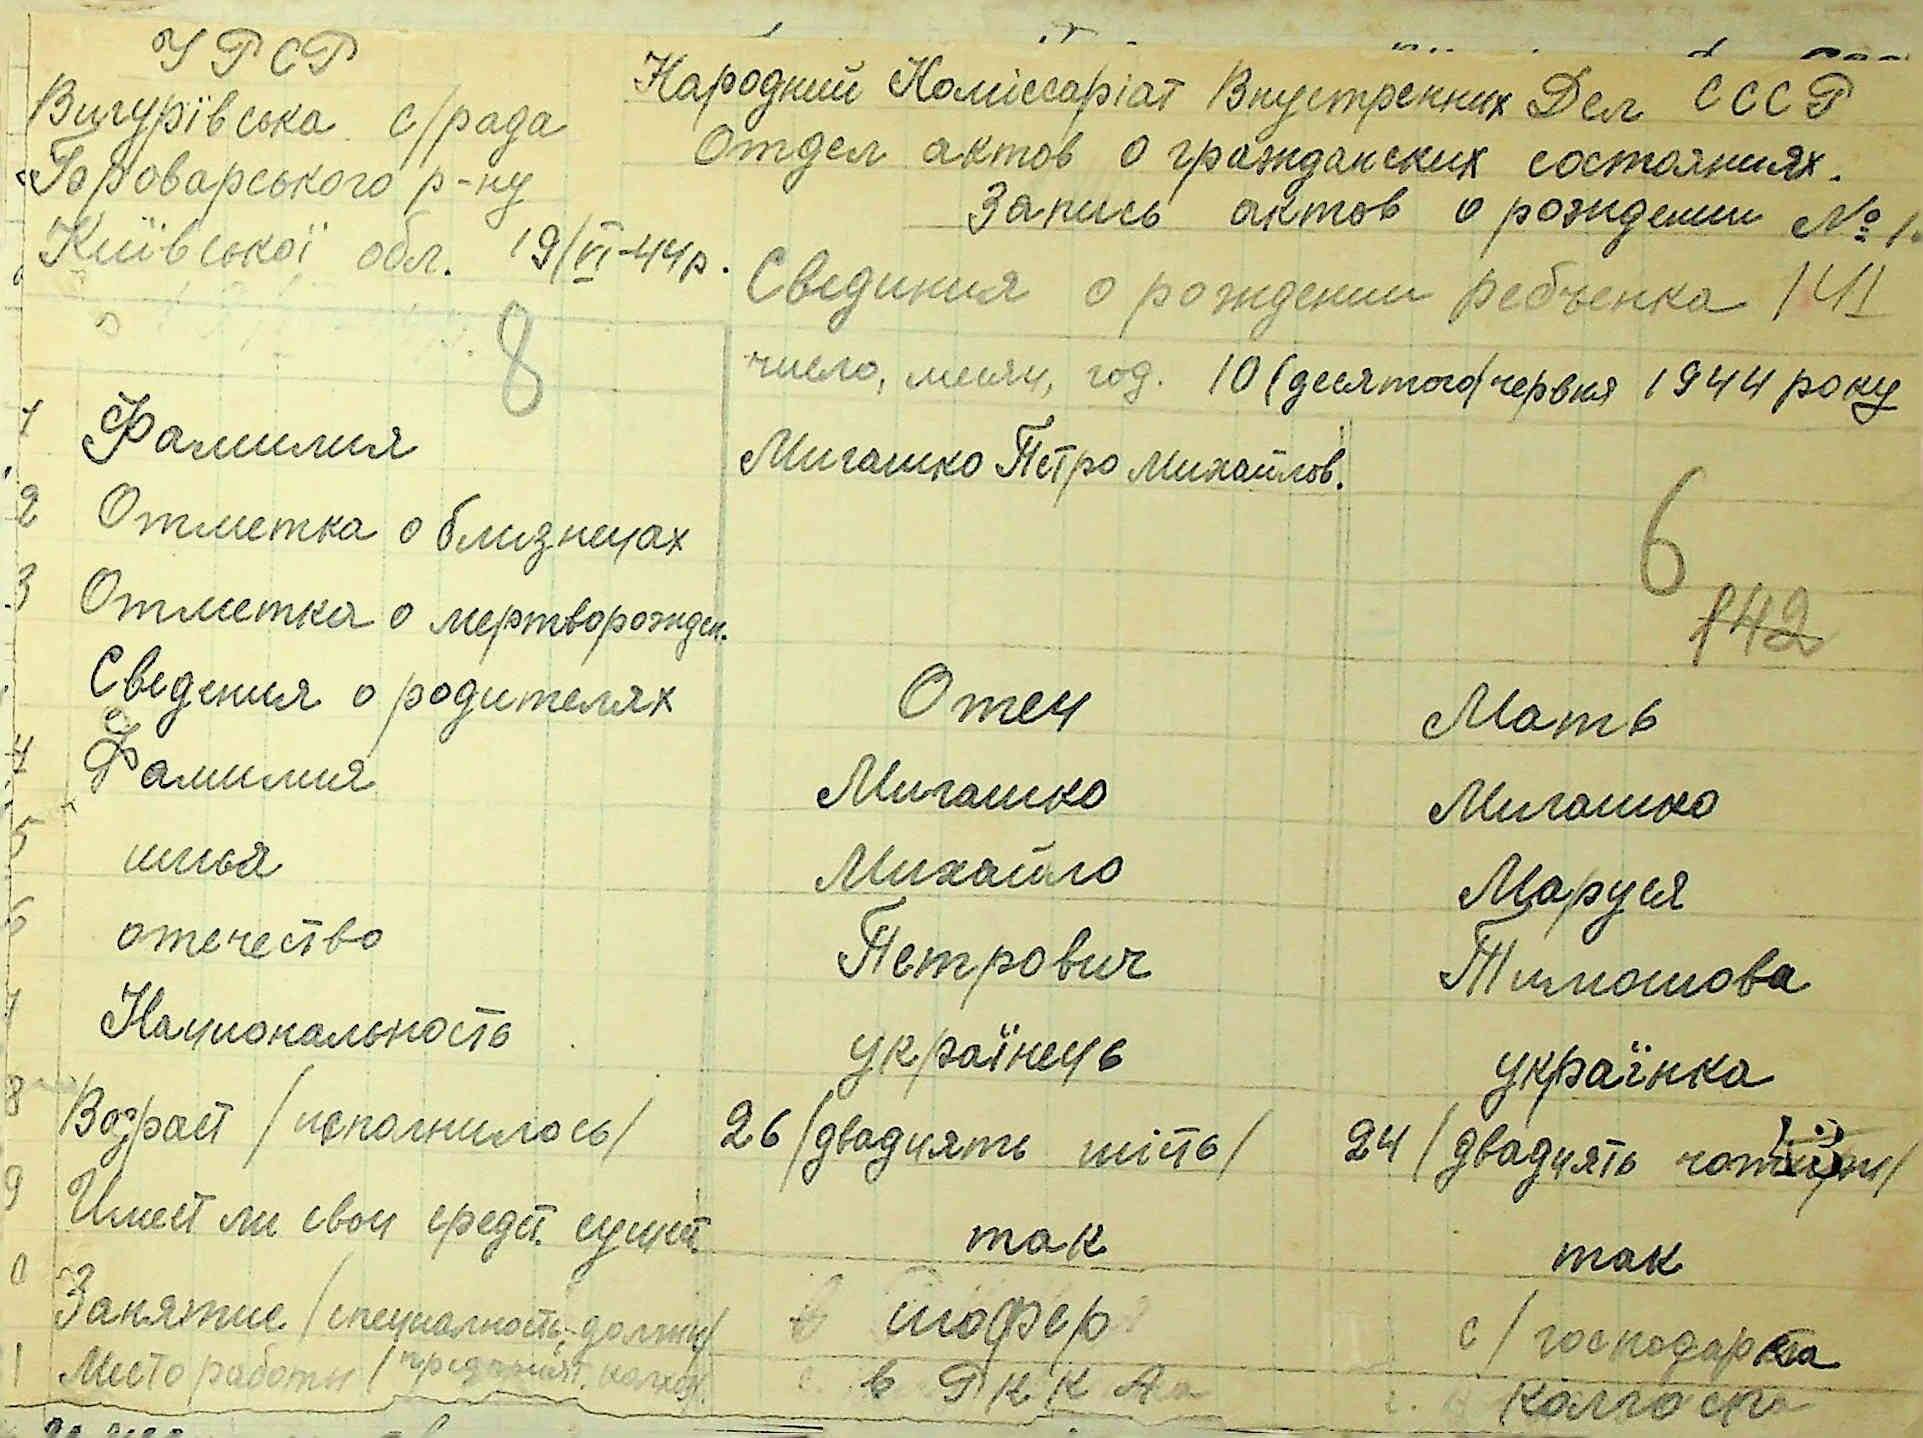 УРСР
Вигурівська с/рада
Броварського р-ну
Київської обл. 19/VI-44р.
Народний Коміссаріат Внустренних Дел СССР
Отдел актов о гражданских состояниях.
Запись актов о рождении № 1.
Свединия о рождении ребъенка 141
8
число, месяц, год. 10 (десятого/червня 1944 року
1 Фамилия Мигашко Петро Михайлов.
2 Отметка о близнецах
6
3 Отметка о мертворожден.
142
Сведения о родителях Отец Мать
4 Фамилия Мигашко Мигашко
5 имья Михайло Маруся
6 отечество Петрович Тимошова
7 Национальность українець українка
8 Возраст /исполнилось/ 26 /двадцять шість/ 24 /двадцять чотири/
9 Имеет ли свои средст. сущест. так так
0 Занятие /специалность, должн/ шофер с/господарка
1 Место работы /предприят. колхоз. в РККА колгосп